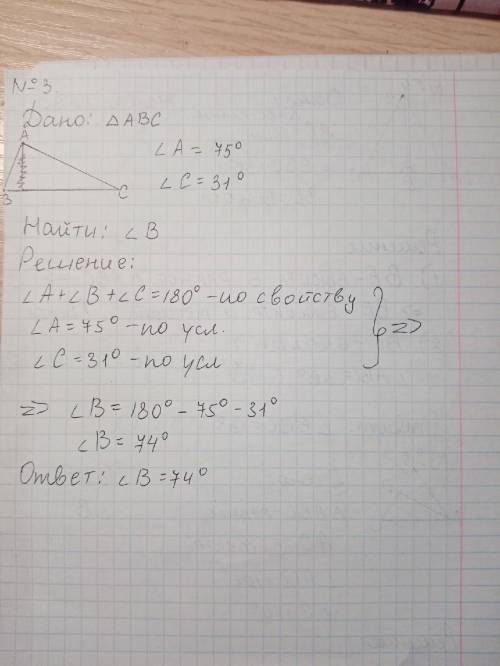 №3.
Дано: △ABC
A
∠A = 75°
∠C = 31°
B
C
Найти: ∠B
Решение:
∠A+∠B+∠C=180° - по свойству
∠A=75° - по усл.
∠C=31° - по усл
=>
=> ∠B = 180° - 75° - 31°
∠B = 74°
Ответ: ∠B = 74°